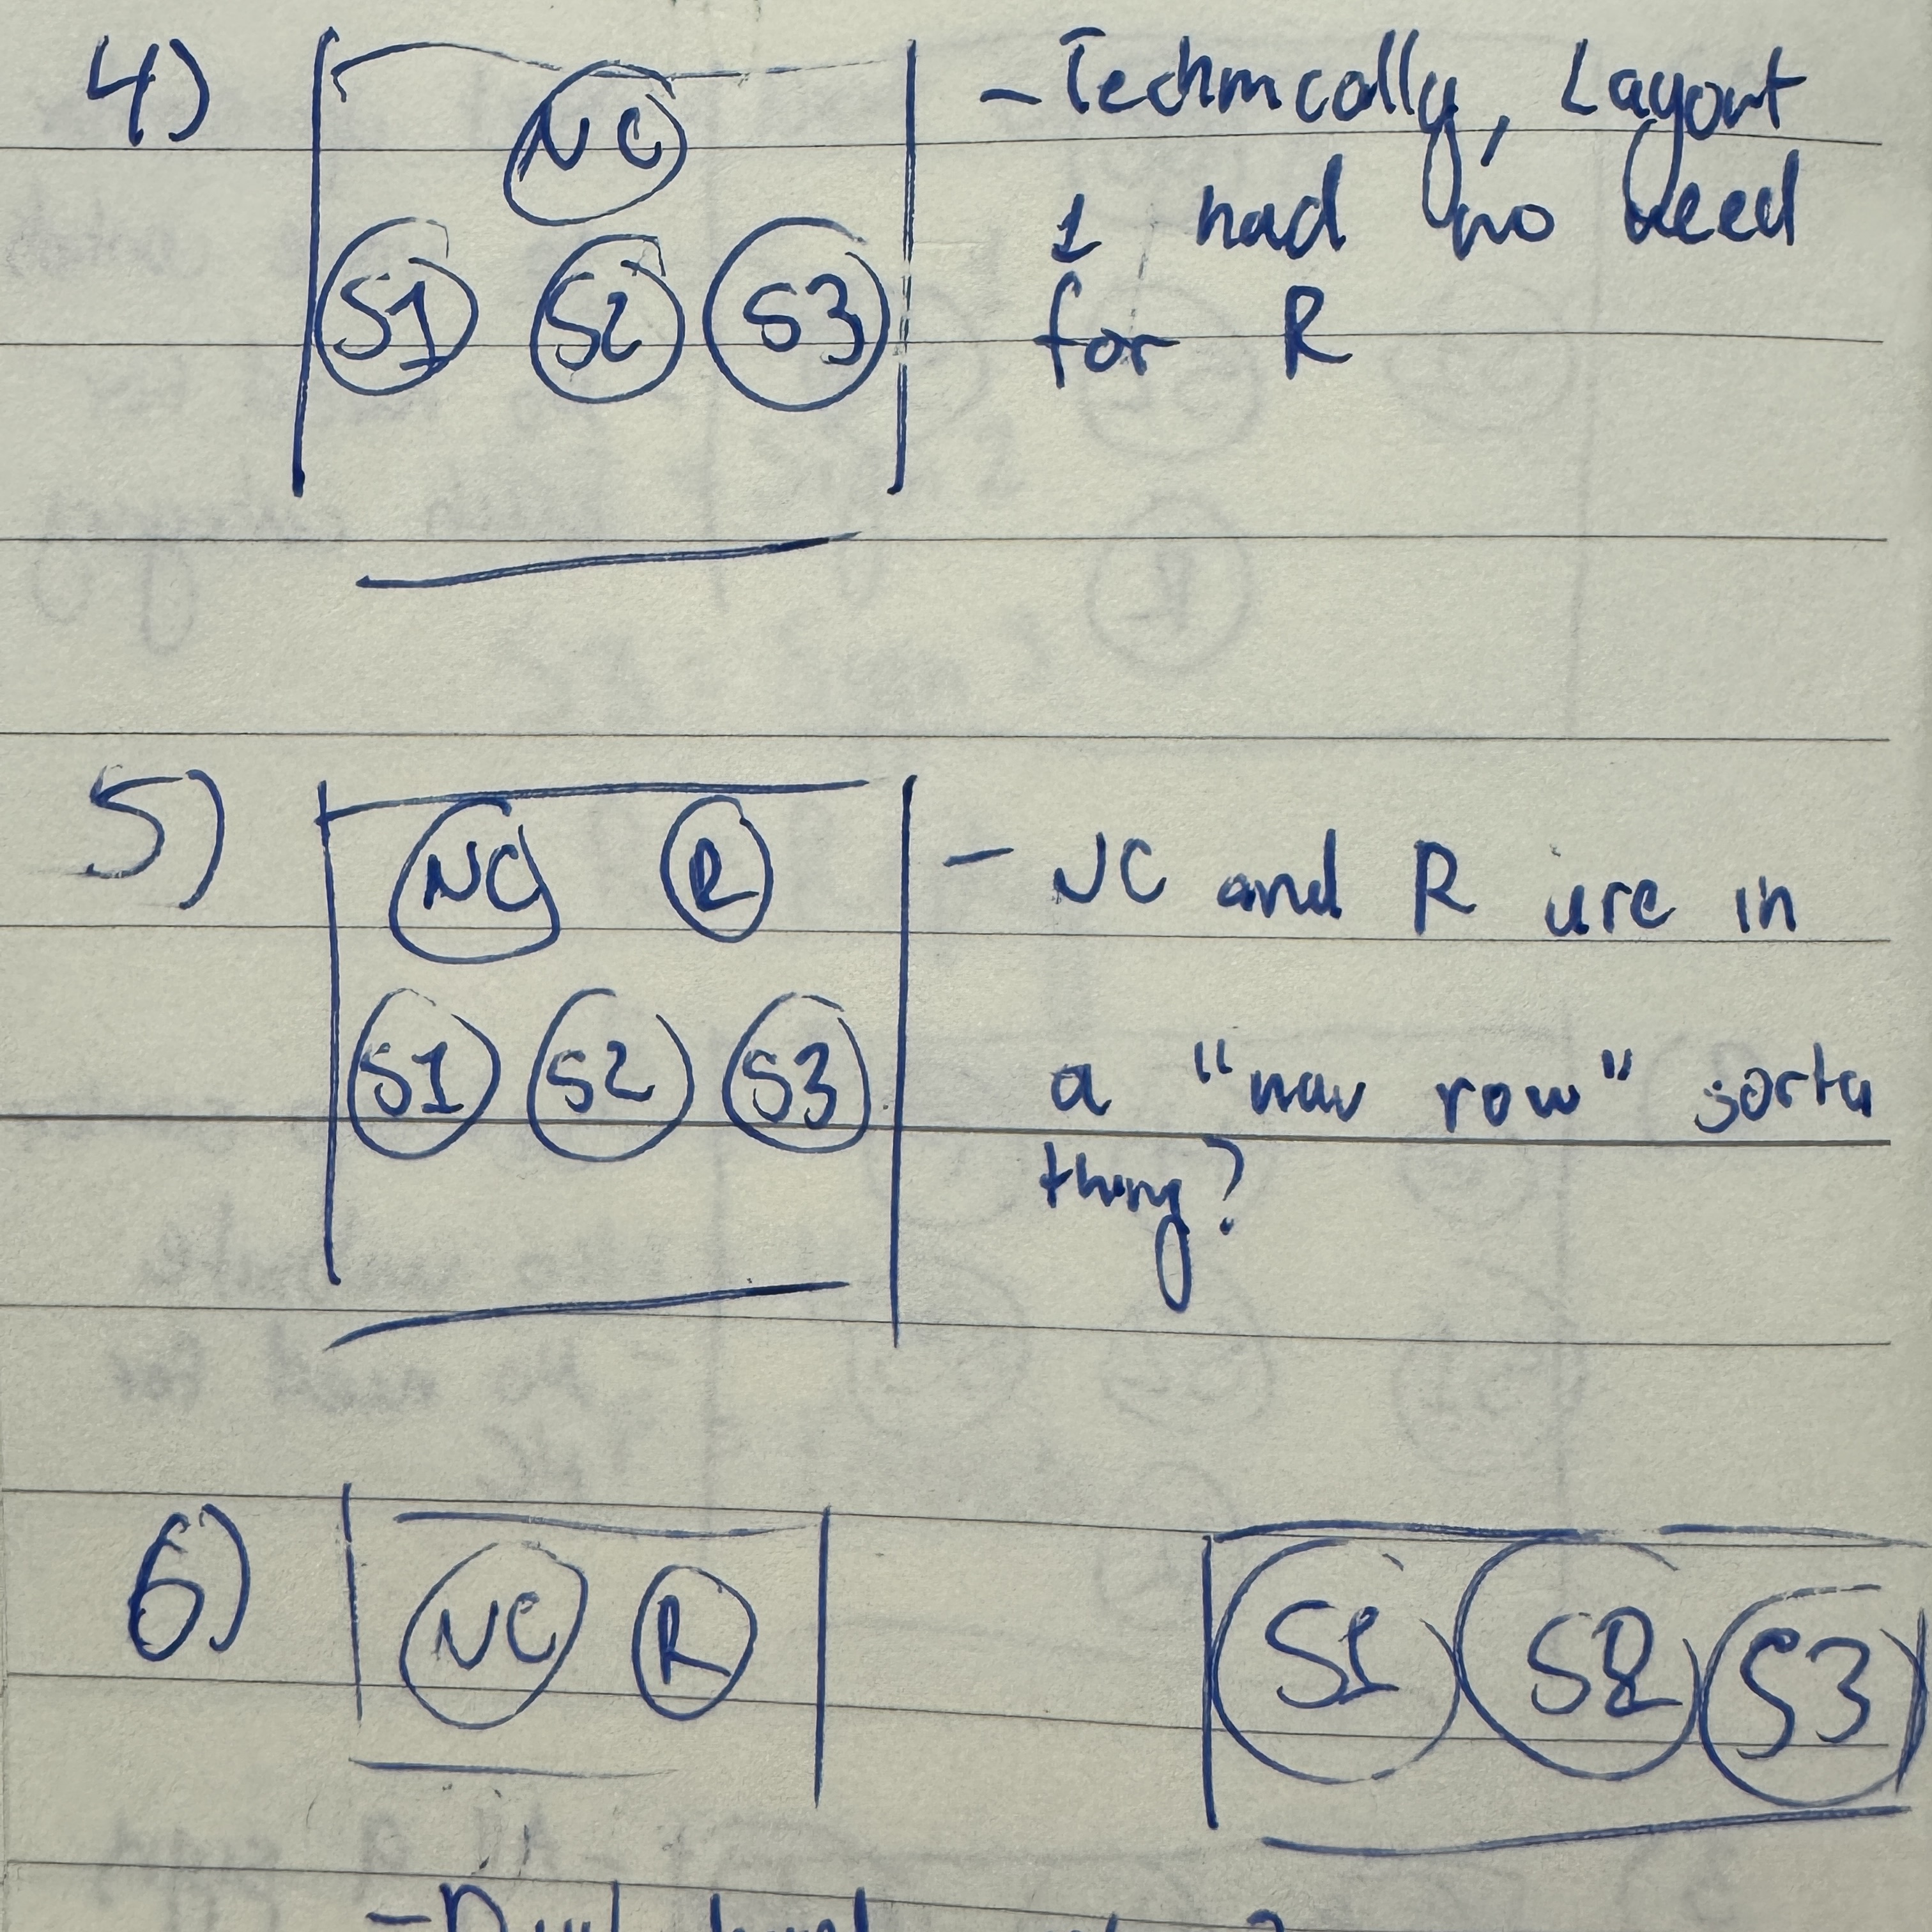 4)
NC
S1 S2 S3
- Technically, Layout
1 had no need
for R
5)
NC R
S1 S2 S3
- NC and R are in
a "nav row" sorta
thing?
6)
NC R
S1 S2 S3